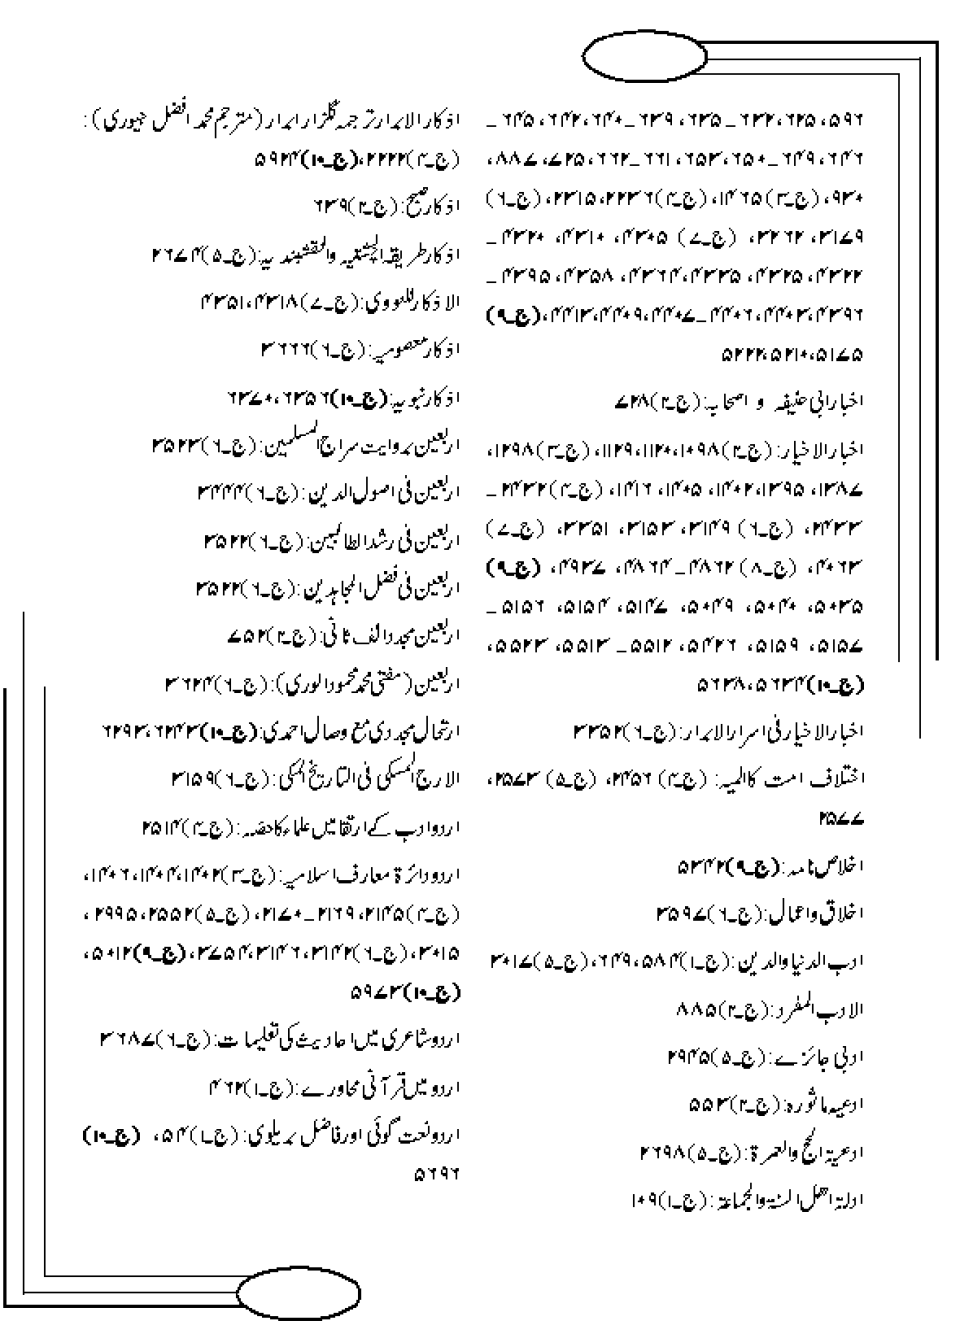 ۵۹۶، ۶۲۵، ۶۳۲ــ۶۳۵، ۶۳۹ــ۶۴۰، ۶۴۲، ۶۴۵ــ
۶۴۶، ۶۴۹ــ۶۵۰، ۶۵۳، ۶۶۱ــ۶۶۲، ۷۲۵، ۷۸۸،
۹۳۰، (ج۔۳)۱۴۶۵، (ج۔۴)۲۲۳۶، ۲۳۱۵، (ج۔۶)
۳۱۷۹، ۳۲۶۲، (ج۔۷) ۴۳۰۵، ۴۳۱۰، ۴۳۲۰ــ
۴۳۲۲، ۴۳۲۵، ۴۳۳۵، ۴۳۶۴، ۴۳۵۸، ۴۳۹۵ــ
۴۳۹۶، ۴۴۰۳، ۴۴۰۶ــ۴۴۰۷، ۴۴۰۹، ۴۴۱۳، (ج۔۹)
۵۱۷۵، ۵۲۱۰، ۵۲۲۲
اخبار ابی حنیفہ و اصحابہ: (ج۔۲)۷۲۸
اخبار الاخیار: (ج۔۲)۱۰۹۸، ۱۱۲۰، ۱۱۲۹، (ج۔۳)۱۲۹۸،
۱۳۸۷، ۱۳۹۵، ۱۴۰۲، ۱۴۰۵، ۱۴۱۶، (ج۔۴)۲۴۳۲ــ
۲۴۳۳، (ج۔۶) ۳۱۴۹، ۳۱۵۳، ۳۳۵۱، (ج۔۷)
۴۰۶۳، (ج۔۸) ۴۸۶۲ــ۴۸۶۴، ۴۹۳۷، (ج۔۹)
۵۰۳۵، ۵۰۴۰، ۵۰۴۹، ۵۱۴۷، ۵۱۵۴، ۵۱۵۶ــ
۵۱۵۷، ۵۱۵۹، ۵۴۲۶، ۵۵۱۲ــ۵۵۱۳، ۵۵۲۳،
(ج۔۱۰)۵۶۳۴، ۵۶۳۸
اخبار الاخیار فی اسرار الابرار: (ج۔۶)۳۳۵۲
اختلاف امت کا المیہ: (ج۔۴) ۲۴۵۶، (ج۔۵) ۲۵۷۳،
۲۵۷۷
اخلاص نامہ: (ج۔۹)۵۳۴۲
اخلاق و اعمال: (ج۔۶)۳۵۹۷
ادب الدنیا والدین: (ج۔۱)۵۸۴، ۶۴۹، (ج۔۵)۳۰۱۷
الادب المفرد: (ج۔۲)۸۸۵
ادبی جائزے: (ج۔۵)۲۹۴۵
ادعیہ ماثورہ: (ج۔۲)۵۵۳
ادعیۃ الحج والعمرۃ: (ج۔۵)۲۶۹۸
ادلۃ اھل السنۃ والجماعۃ: (ج۔۱)۱۰۹
اذکار الابرار ترجمہ گلزار ابرار (مترجم محمد افضل جیوری):
(ج۔۴)۲۲۲۲، (ج۔۱۰)۵۹۲۴
اذکار صبح: (ج۔۲)۶۳۹
اذکار طریقہ الچشتیہ والنقشبندیہ: (ج۔۵)۲۶۷۴
الاذکار للنووی: (ج۔۷)۴۳۱۸، ۴۳۵۱
اذکار معصومیہ: (ج۔۶)۳۶۶۶
اذکار نبویہ: (ج۔۱۰)۶۳۵۶، ۶۳۷۰
اربعین بروایت سراج المسلمین: (ج۔۶)۳۵۲۳
اربعین فی اصول الدین: (ج۔۶)۳۴۴۴
اربعین فی رشد الطالبین: (ج۔۶)۳۵۲۲
اربعین فی فضل المجاہدین: (ج۔۶)۳۵۲۲
اربعین مجدد الف ثانی: (ج۔۲)۷۵۲
اربعین (مفتی محمد محمود الوری): (ج۔۶)۳۶۲۴
ارتحال مجددی مع وصال احمدی: (ج۔۱۰)۶۲۴۳، ۶۲۹۳
الارج المسکی فی التاریخ المکی: (ج۔۶)۳۱۵۹
اردو ادب کے ارتقا میں علماء کا حصّہ: (ج۔۴)۲۵۱۴
اردو دائرۃ معارف اسلامیہ: (ج۔۳)۱۴۰۲، ۱۴۰۴، ۱۴۰۶،
(ج۔۴)۲۱۴۵، ۲۱۶۹ــ۲۱۷۰، (ج۔۵)۲۵۵۲، ۲۹۹۵،
۳۰۱۵، (ج۔۶)۳۱۴۲، ۳۱۴۶، ۳۷۵۴، (ج۔۹)۵۰۱۲،
(ج۔۱۰)۵۹۷۳
اردو شاعری میں احادیث کی تعلیمات: (ج۔۶)۳۶۸۷
اردو میں قرآنی محاورے: (ج۔۱)۴۶۲
اردو نعت گوئی اور فاضل بریلوی: (ج۔۱)۵۴، (ج۔۱۰)
۵۶۹۶